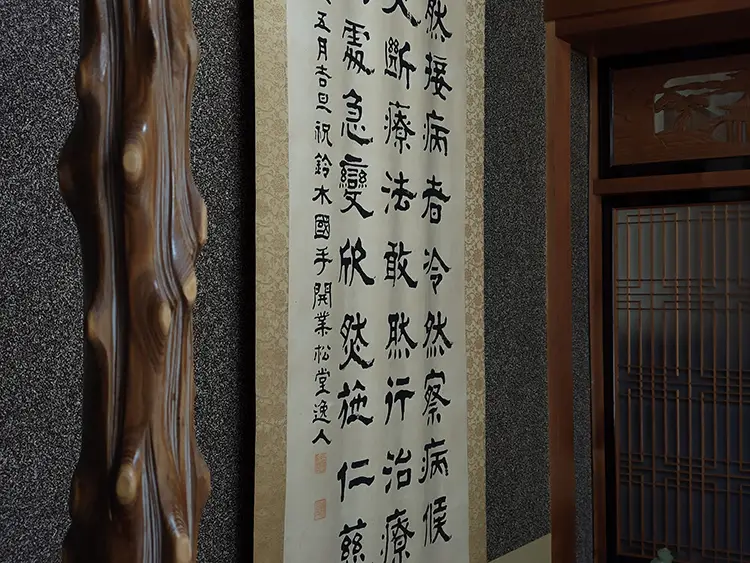 然接病者冷然察病候
断療法敢然行治療
處急變欣然施仁慈
五月吉旦祝鈴木國手開業松堂逸人